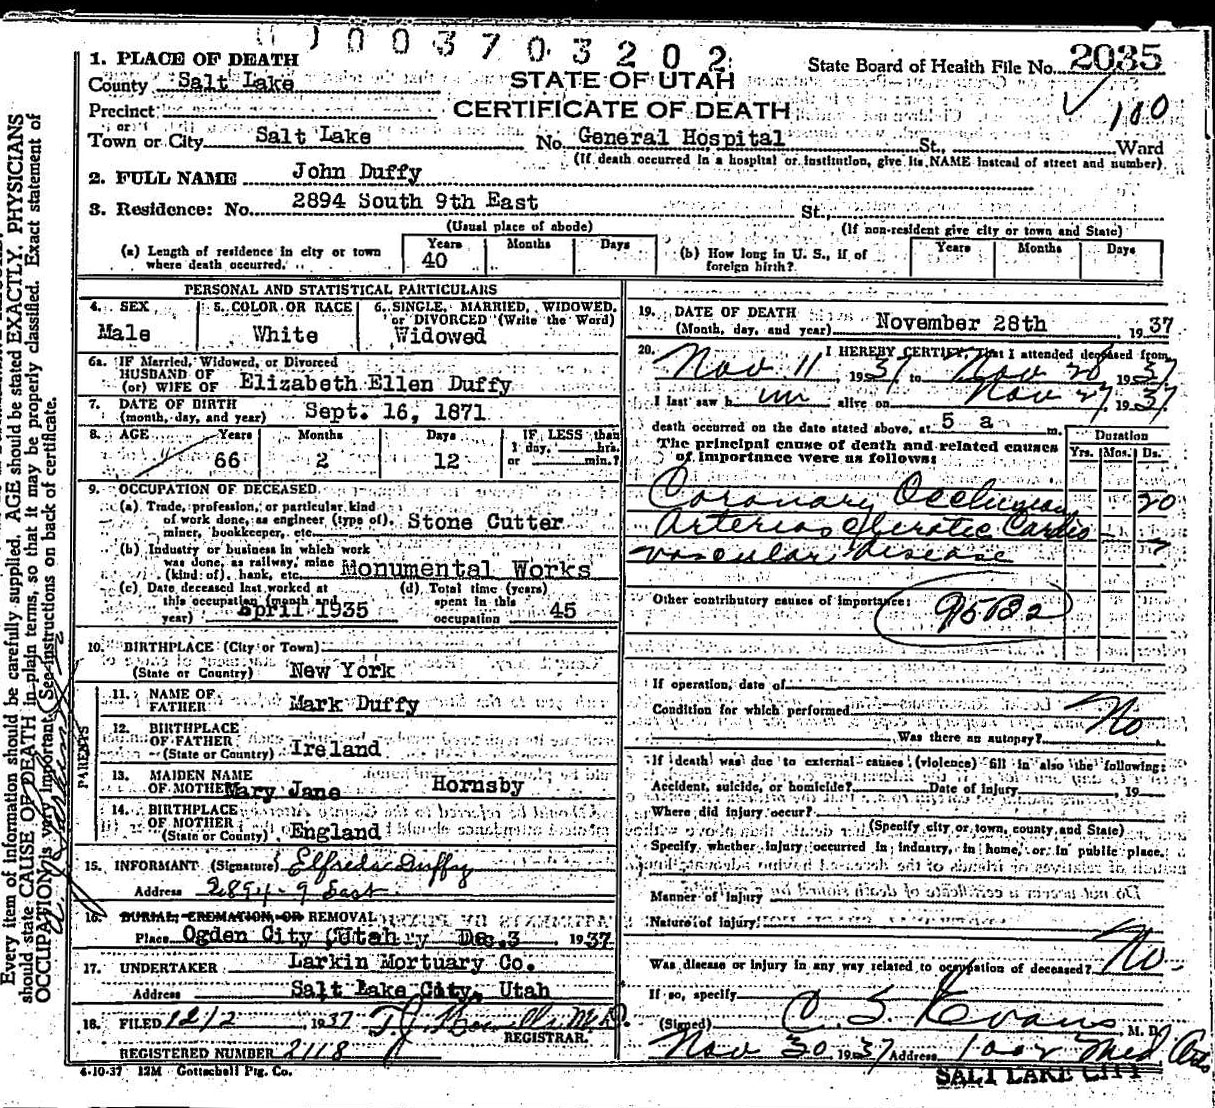 003703202
2035
1. PLACE OF DEATH
State Board of Health File No. 2035
County Salt Lake
STATE OF UTAH
Precinct
CERTIFICATE OF DEATH
100
Town or City Salt Lake No. General Hospital St., Ward
(If death occurred in a hospital or institution, give its NAME instead of street and number).
2. FULL NAME John Duffy
3. Residence: No. 2894 South 9th East St.,
(Usual place of abode) (If non-resident give city or town and State)
(a) Length of residence in city or town where death occurred. Years 40 Months Days
(b) How long in U. S., if of foreign birth? Years Months Days
PERSONAL AND STATISTICAL PARTICULARS
4. SEX Male
5. COLOR OR RACE White
6. SINGLE, MARRIED, WIDOWED, or DIVORCED (Write the Word) Widowed
6a. IF Married, Widowed, or Divorced
HUSBAND OF
(or) WIFE OF Elizabeth Ellen Duffy
7. DATE OF BIRTH
(month, day, and year) Sept. 16, 1871
8. AGE Years 66 Months 2 Days 12 IF LESS than 1 day, hrs. or min.?
9. OCCUPATION OF DECEASED
(a) Trade, profession, or particular kind of work done, as engineer (type of), miner, bookkeeper, etc. Stone Cutter
(b) Industry or business in which work was done, as railway, mine (kind of), bank, etc. Monumental Works
(c) Date deceased last worked at this occupation (month and year) April 1935
(d) Total time (years) spent in this occupation 45
10. BIRTHPLACE (City or Town)
(State or Country) New York
PARENTS
11. NAME OF FATHER Mark Duffy
12. BIRTHPLACE OF FATHER
(State or Country) Ireland
13. MAIDEN NAME OF MOTHER Mary Jane Hornsby
14. BIRTHPLACE OF MOTHER
(State or Country) England
15. INFORMANT (Signature) Elfreda Duffy
Address 2894-9 East
16. BURIAL, CREMATION, OR REMOVAL
Place Ogden City, Utah Dec. 3 1937
17. UNDERTAKER Larkin Mortuary Co.
Address Salt Lake City, Utah
18. FILED 12/2 1937
REGISTRAR.
REGISTERED NUMBER 2118
4-10-37 12M Gottschall Ptg. Co.
19. DATE OF DEATH
(Month, day, and year) November 28th 1937
20. I HEREBY CERTIFY, That I attended deceased from
Nov 11, 1937 to Nov 28 1937
I last saw him alive on Nov 27, 1937
death occurred on the date stated above, at 5 a m.
Duration
The principal cause of death and related causes of importance were as follows:
Yrs. Mos. Ds.
Coronary Occlusion 20
Arteriosclerotic Cardio
vascular disease
Other contributory causes of importance:
If operation, date of
Condition for which performed
Was there an autopsy? No
If death was due to external causes (violence) fill in also the following:
Accident, suicide, or homicide? Date of injury , 19
Where did injury occur?
(Specify city or town, county and State)
Specify whether injury occurred in industry, in home, or in public place.
Manner of injury
Nature of injury
Was disease or injury in any way related to occupation of deceased? No
If so, specify
(Signed) C. S. Evans M. D.
Nov 30 1937 Address 1002 Med Arts
SALT LAKE CITY
Every item of information should be carefully supplied. AGE should be stated EXACTLY. PHYSICIANS
should state CAUSE OF DEATH in plain terms, so that it may be properly classified. Exact statement of
OCCUPATION is very important. (See instructions on back of certificate.